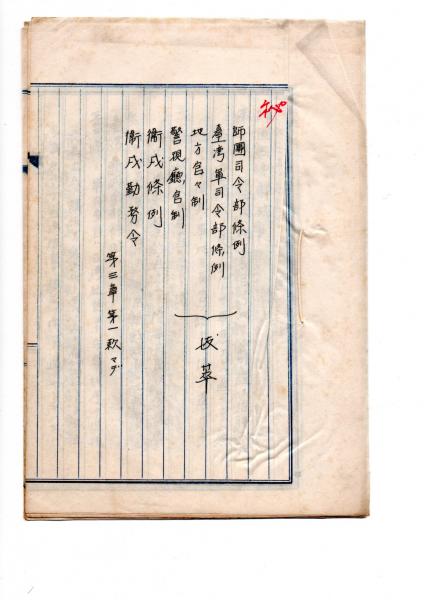 秘
師團司令部條例
臺灣軍司令部條例
地方官々制
警視廳官制
抜萃
衞戍條例
衞戍勤務令
第三章第一款マデ